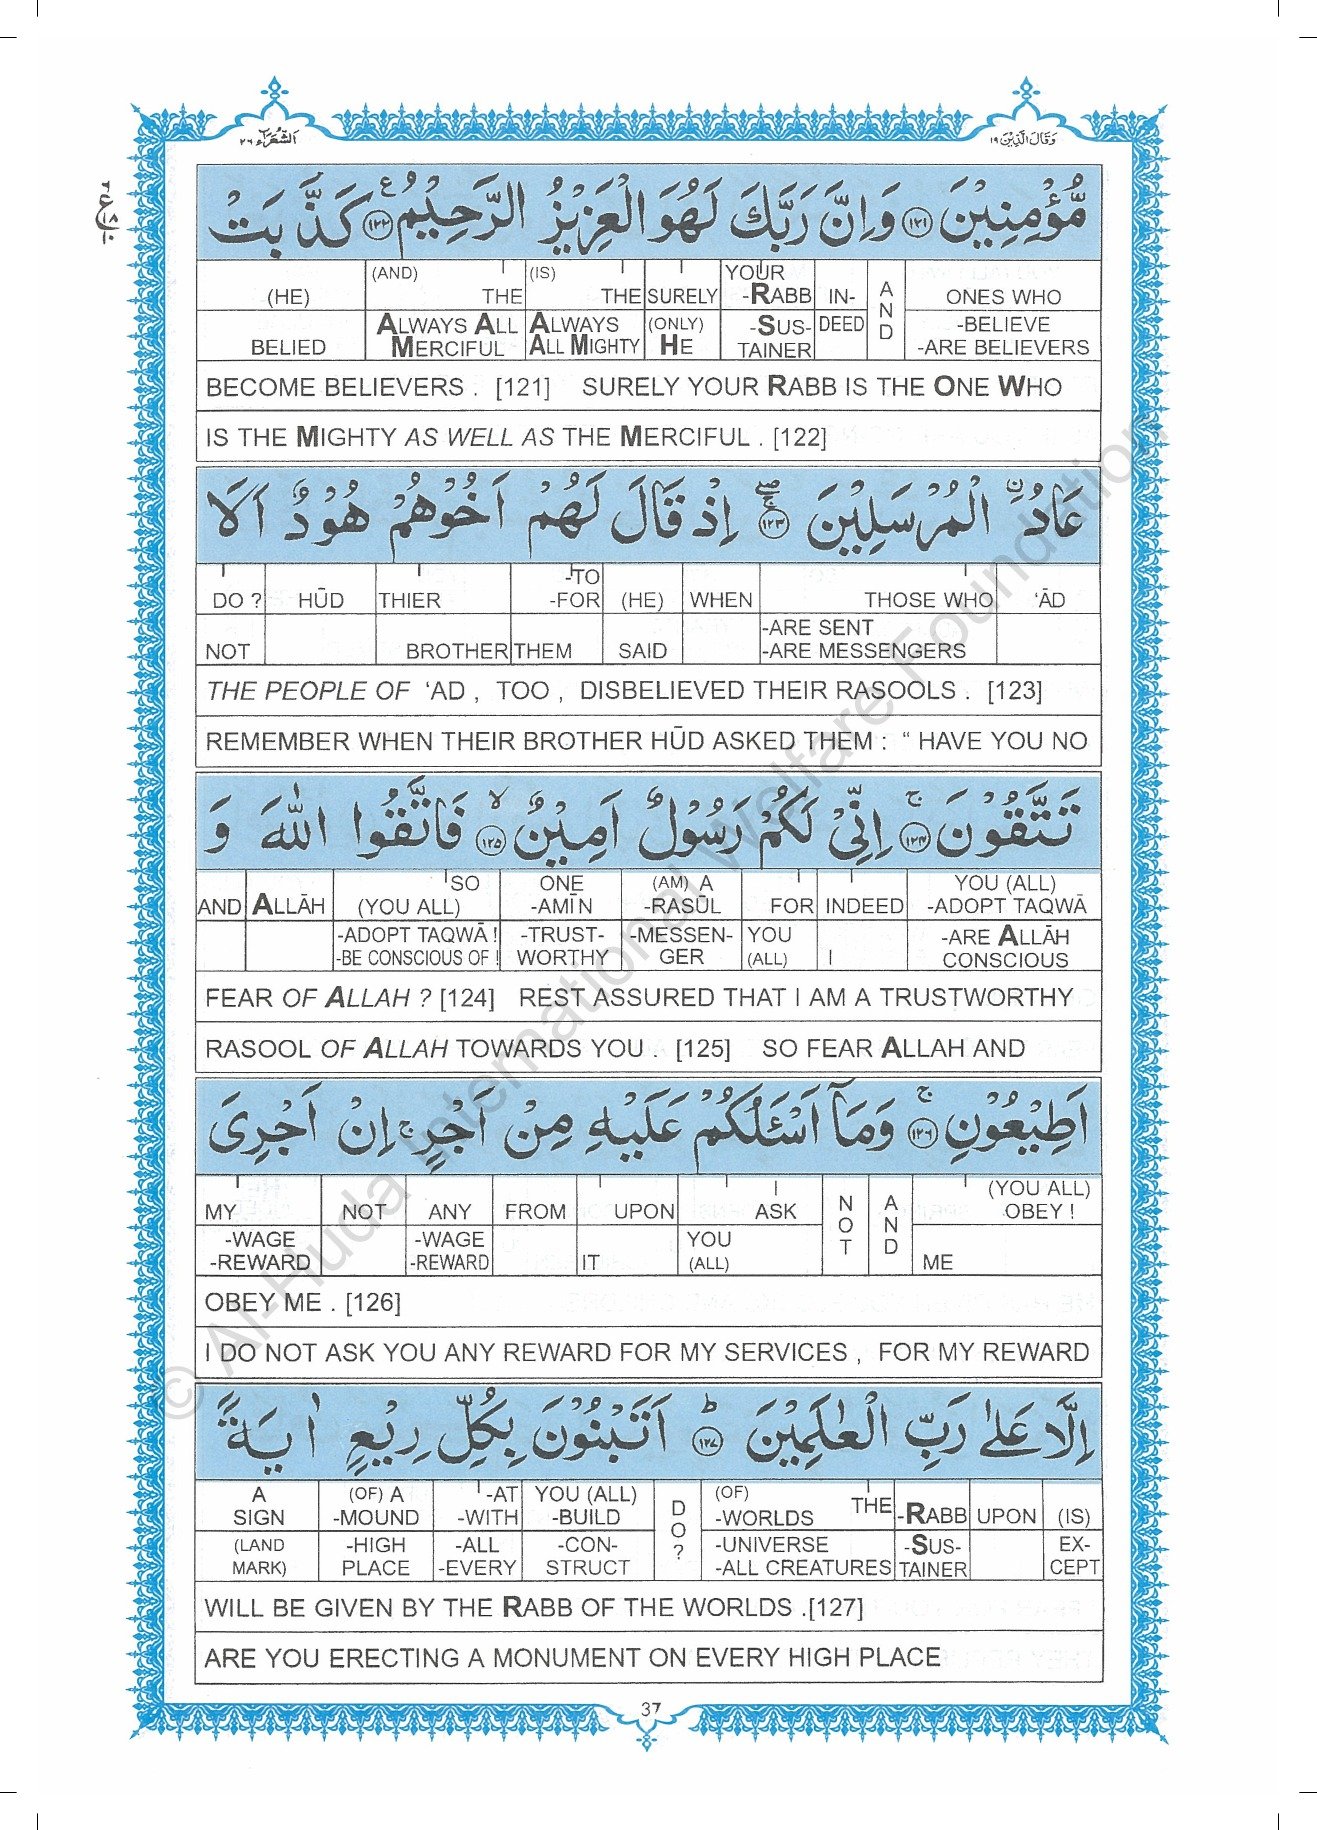 وَقَالَ الَّذِيْنَ ١٩
اَلشُّعَرَآء ٢٦
مُّؤْمِنِيْنَ ١٢١ وَاِنَّ رَبَّكَ لَهُوَ الْعَزِيْزُ الرَّحِيْمُ ١٢٢ ع كَذَّبَتْ
(HE) (AND) THE (IS) THE SURELY YOUR -RABB IN- AND ONES WHO
BELIED ALWAYS ALL MERCIFUL ALWAYS ALL MIGHTY (ONLY) HE -SUS-TAINER DEED -BELIEVE -ARE BELIEVERS
BECOME BELIEVERS . [121] SURELY YOUR RABB IS THE ONE WHO
IS THE MIGHTY AS WELL AS THE MERCIFUL . [122]
عَادُ ۨ الْمُرْسَلِيْنَ ١٢٣ اِذْ قَالَ لَهُمْ اَخُوْهُمْ هُوْدٌ اَلَا
DO ? HŪD THIER -TO -FOR (HE) WHEN THOSE WHO ‘ĀD
NOT BROTHER THEM SAID -ARE SENT -ARE MESSENGERS
THE PEOPLE OF ‘AD , TOO , DISBELIEVED THEIR RASOOLS . [123]
REMEMBER WHEN THEIR BROTHER HŪD ASKED THEM : “ HAVE YOU NO
تَتَّقُوْنَ ١٢٤ اِنِّيْ لَكُمْ رَسُوْلٌ اَمِيْنٌ ١٢٥ فَاتَّقُوا اللّٰهَ وَ
AND ALLĀH SO (YOU ALL) ONE -AMĪN (AM) A -RASŪL FOR INDEED YOU (ALL) -ADOPT TAQWĀ
-ADOPT TAQWĀ ! -BE CONSCIOUS OF ! -TRUST-WORTHY -MESSEN-GER YOU (ALL) I -ARE ALLĀH CONSCIOUS
FEAR OF ALLAH ? [124] REST ASSURED THAT I AM A TRUSTWORTHY
RASOOL OF ALLAH TOWARDS YOU . [125] SO FEAR ALLAH AND
اَطِيْعُوْنِ ١٢٦ وَمَآ اَسْـَٔلُكُمْ عَلَيْهِ مِنْ اَجْرٍ اِنْ اَجْرِيَ
MY NOT ANY FROM UPON I ASK NOT AND (YOU ALL) OBEY !
-WAGE -REWARD -WAGE -REWARD IT YOU (ALL) ME
OBEY ME . [126]
I DO NOT ASK YOU ANY REWARD FOR MY SERVICES , FOR MY REWARD
اِلَّا عَلٰى رَبِّ الْعٰلَمِيْنَ ١٢٧ اَتَبْنُوْنَ بِكُلِّ رِيْعٍ اٰيَةً
A SIGN (OF) A -MOUND -AT -WITH YOU (ALL) -BUILD DO ? (OF) -WORLDS THE -RABB UPON (IS)
(LAND MARK) -HIGH PLACE -ALL -EVERY -CON-STRUCT -UNIVERSE -ALL CREATURES -SUS-TAINER EX-CEPT
WILL BE GIVEN BY THE RABB OF THE WORLDS .[127]
ARE YOU ERECTING A MONUMENT ON EVERY HIGH PLACE
37
© Al-Huda International Welfare Foundation